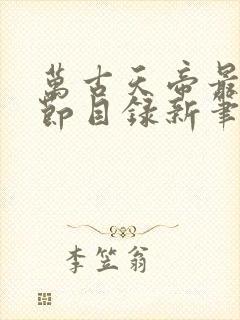 萬古天帝最
節目録新筆
李笠翁